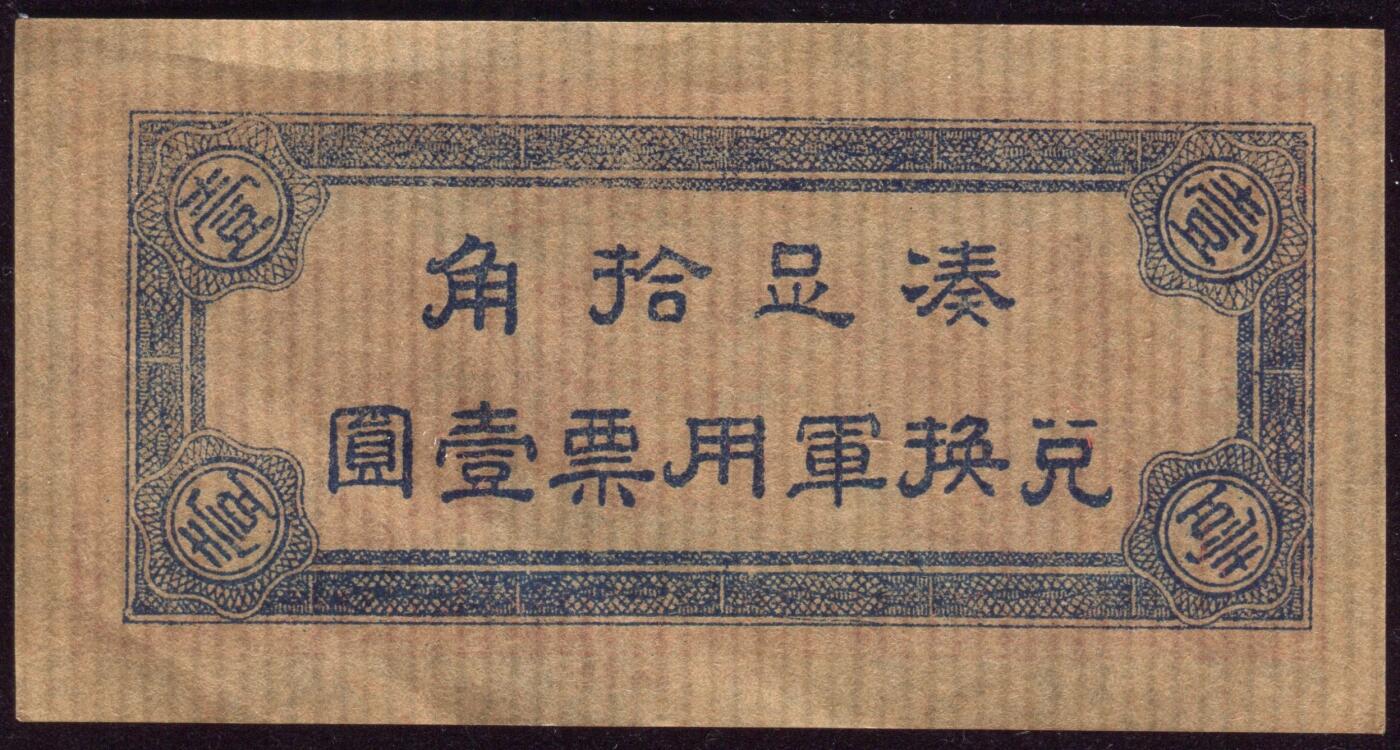 湊足拾角
兌換軍用票壹圓
壹
壹
壹
壹